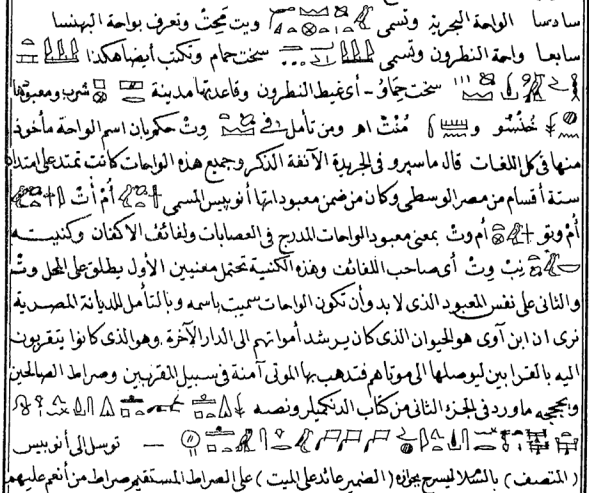 سادسا الواحة البحرية وتسمى ويت مَحِتْ وتعرف بواحة البهنسا
سابعا واحة النطرون وتسمى سخت حمام وتكتب أيضا هكذا
سخت حمَاوُ - أى غيط النطرون وقاعدتها مدينة شرب ومعبودها
خُنْسُو و مُنْتْ اهـ ومن تأمل فى وِتْ حكم بان اسم الواحة مأخوذ
منها فى كل اللغات قال ماسبرو فى الجريدة الآنفة الذكر وجميع هذه الواحات كانت تمتد على امتداد
ستة أقسام من مصر الوسطى وكان من ضمن معبوداتها أنوبيس المسمى أُمْ أُتْ
أُمْ وِتو أم وِتْ بمعنى معبود الواحات المدرج فى العصابات ولفائف الاكفان وكنيته
نِبْ وِتْ أى صاحب اللفائف وهذه الكنية تحتمل معنيين الأول يطلق على المحل وِتْ
والثانى على نفس المعبود الذى لا بد وأن تكون الواحات سميت باسمه وبالتأمل للديانة المصرية
نرى ان ابن آوى هو الحيوان الذى كان يرشد أمواتهم الى الدار الآخرة وهو الذى كانوا يتقربون
اليه بالقرابين ليوصلها الى موتاهم فتذهب بها الموتى آمنة فى سبيل المقربين وصراط الصالحين
ما ورد فى الجزء الثانى من كتاب الدنكميلر ونصه
— توسل الى أنوبيس
(المتصف) ليسرح بجوازه (الضمير عائد على الميت) على الصراط المستقيم صراط من أنعم عليهم